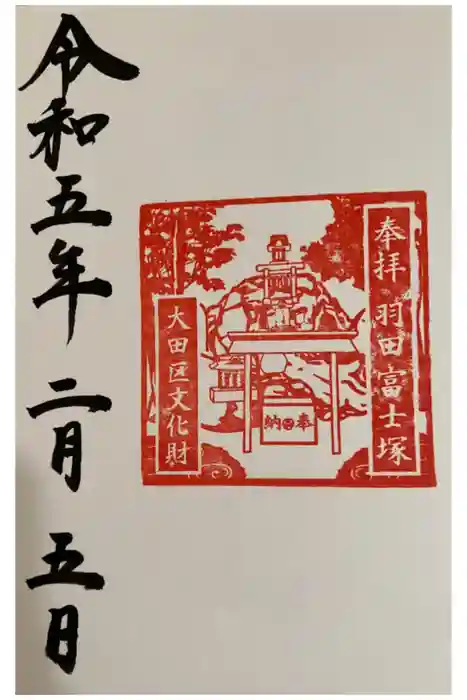 奉拝 羽田富士塚
奉納
大田区文化財
令和五年 二月 五日